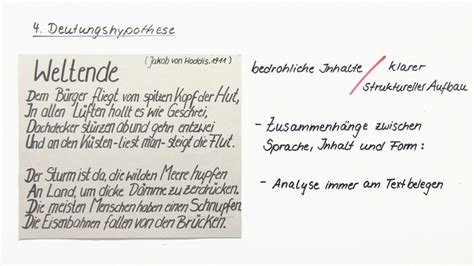 4. Deutungshypothese
(Jakob von Hoddis, 1911)
Weltende
Dem Bürger fliegt vom spitzen Kopf der Hut,
In allen Lüften hallt es wie Geschrei,
Dachdecker stürzen ab und gehn entzwei
Und an den Küsten - liest man - steigt die Flut.
Der Sturm ist da, die wilden Meere hupfen
An Land, um dicke Dämme zu zerdrücken.
Die meisten Menschen haben einen Schnupfen.
Die Eisenbahnen fallen von den Brücken.
bedrohliche Inhalte / klarer
struktureller Aufbau
- Zusammenhänge zwischen
Sprache, Inhalt und Form:
- Analyse immer am Text belegen